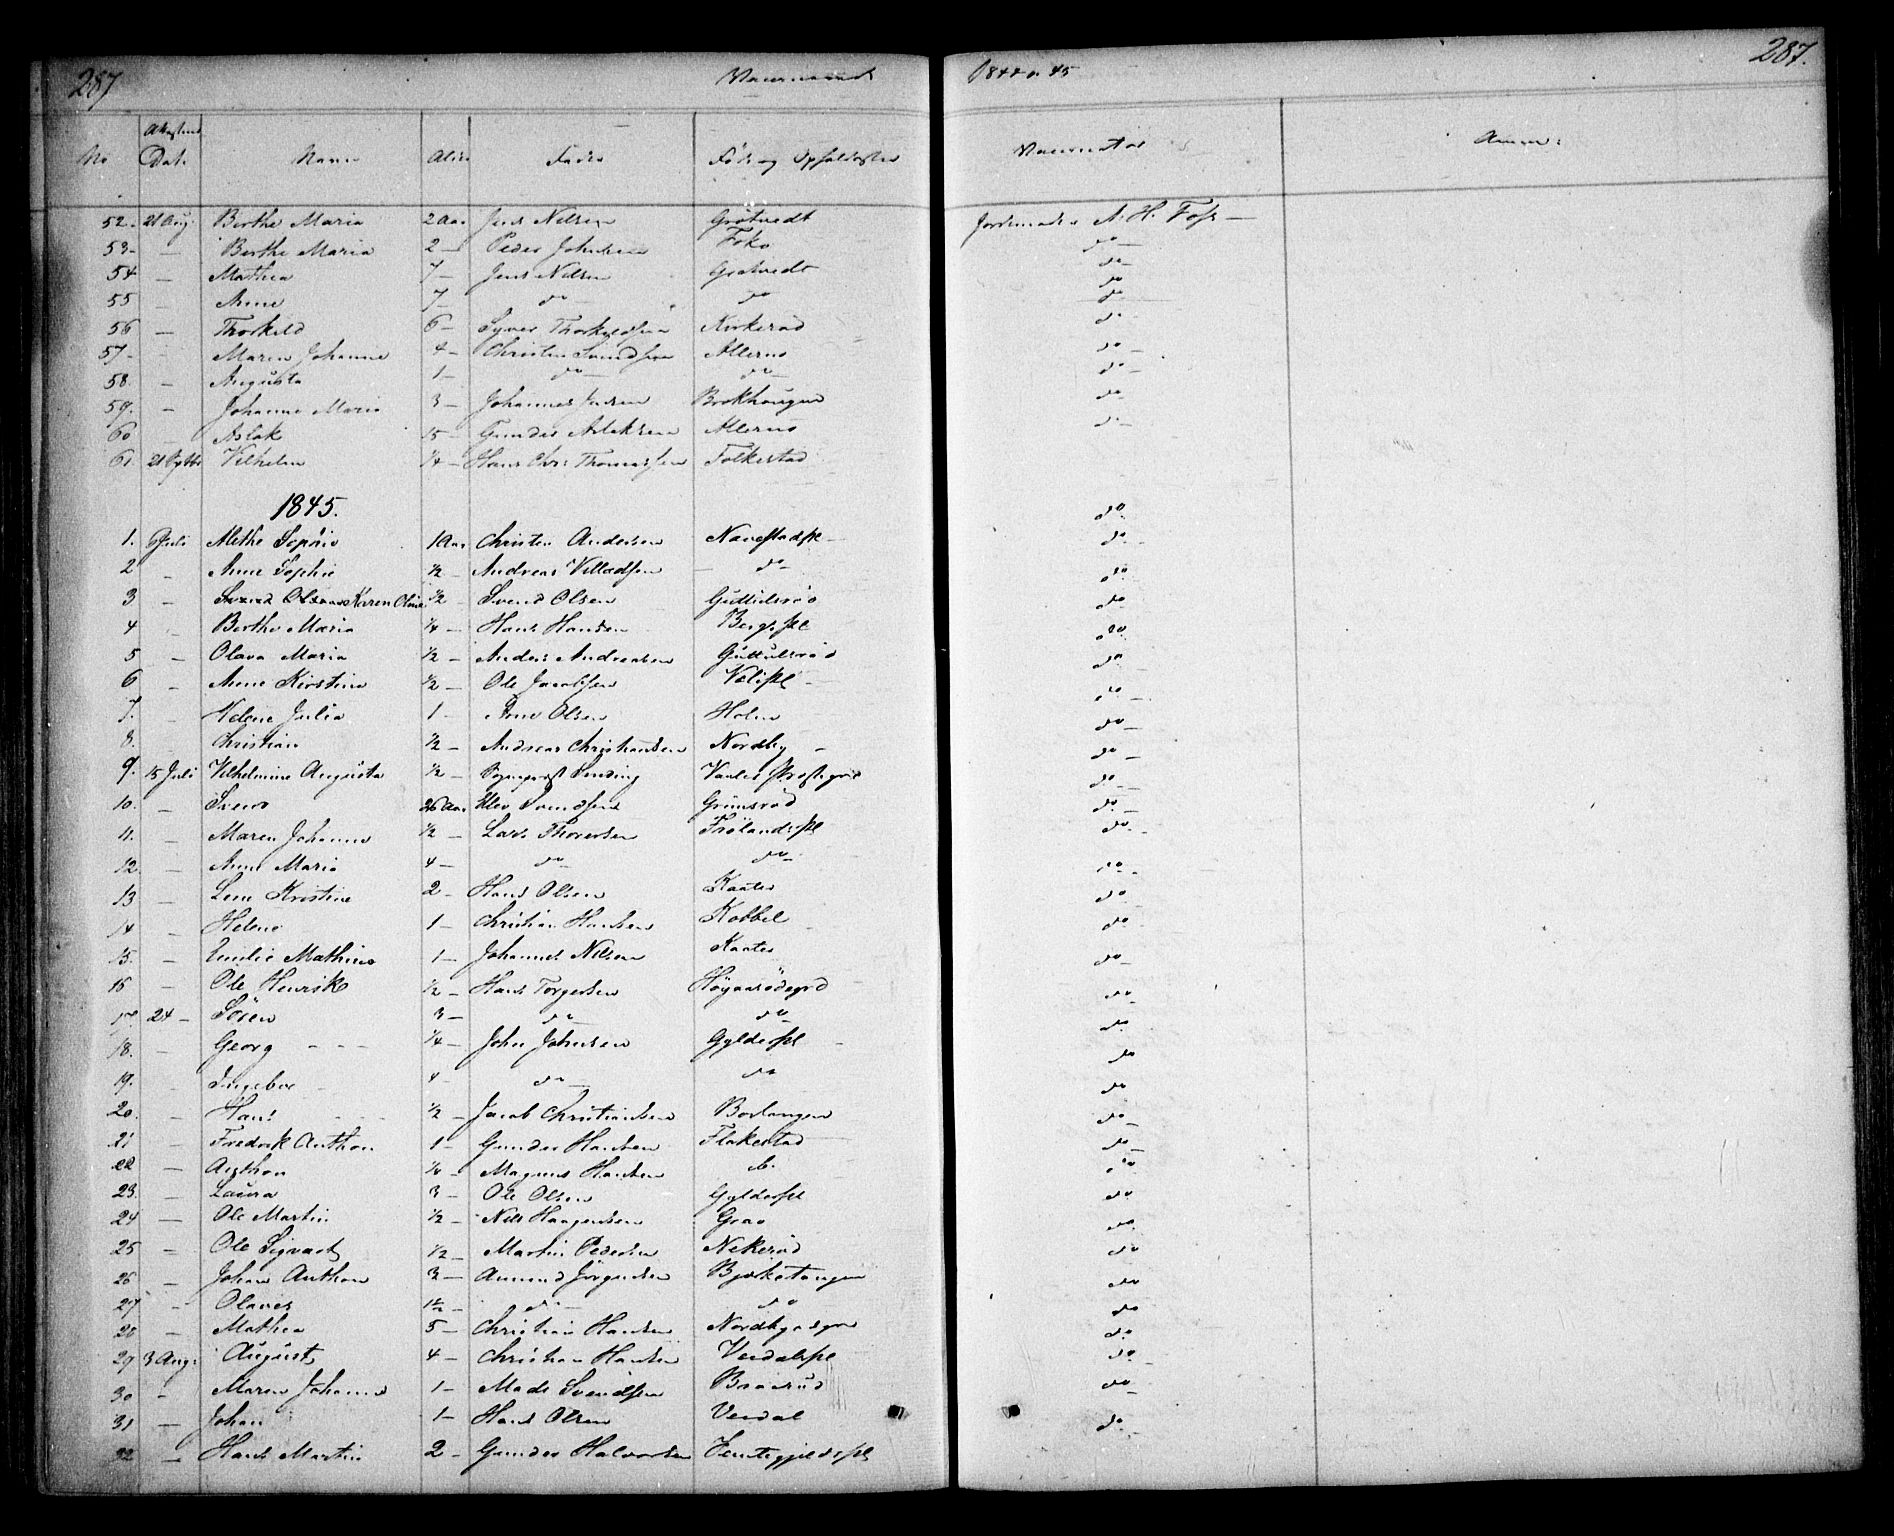 287 Vaccinerede 1844 og 45 287.
No Attestens Dat. Navn Alder Fader Føde og Opholdssted Vaccinator Anm:
52. 21 Aug. Berthe Maria 2 Aar Jens Nilsen Grøtvedt Jordemoder A. H. Foss —
53 — Berthe Maria 2 — Peder Johnsen do —
54 — Mathea 7 — Jens Nilsen Grøtvedt do
55 — Anne 7 — do do do
56 — Thorkild 6 — Syver Thorkildsen Kirkerød do
57 — Maren Johanne 4 — Christen Svendsen Allerød do —
58. — Augusta 1 — do do do —
59. — Johanne Maria 3 — Johannes Jensen Brekhougen do
60 Aslak 15 — Gunder Aslaksen Allerød do
61 21 Vilhelm ¼ — Hans Chr. Thomassen Folkestad
1845. do
1. Juli Methe Sophie 1 Aar Christen Andersen Navestadpl — do
2 — Anne Sophie ½ — Andreas Villadsen do do
3 — Karen Oline ½ — Svend Olsen Guttulsrød do
4 Berthe Maria ¼ — Hans Hansen Bergspl do
5 — Olava Maria ½ — Anders Andreasen Guttulsrød do
6 — Anne Kirstine ½ — Ole Jacobsen do
7. Helene Julia 1 — Arne Olsen Holm do
8. Christian ½ — Andreas Christiansen Nordby do —
9. 15 Juli Vilhelmine Augusta ½ — Sinding Vaaler Præstegrd do —
10. — Svend 26 Aar Elev Svendsen Grimsrød do —
11. — Maren Johanne ½ — Lars Thoresen Frølandspl do
12. — Anne Maria 4 — do do do
13 — Lene Kristine 2 — Hans Olsen Kaater do
14 — Helene 1 — Christian Hansen Kobbel do
15. — Emilie Mathine 1 — Johannes Nilsen Kaater do —
16 — Ole Henrik ½ — Hans Torgersen do
17. 24 — Søren 3 — do do do
18. — Georg ¼ — John Johnsen Gylderspl do
19. Ingebor 4 — do do do
20. — Hans ½ — Jacob Christiansen do —
21 — Fredrik Anthon 1 — Gunder Hansen Flakestad do —
22 — Anthon — Magnus Hansen do. do
23. — Laura 3 — Ole Olsen Gylderspl do
24 — Ole Martin ½ — Nils Haagensen do
25 — Ole Sigvart ½ — Martin Pedersen Nekerød do
26 — Johan Anthon 3 — Amund Jørgensen Bjerketangen do
27 — Olaves 1½ — do do do
28 — Mathea 5 — Christian Hansen do
29 3 Aug: August 4 — Christian Hansen Verdalspl do —
30 — Maren Johanne 1 — Mads Svendsen do
31 — Johan 1 — Hans Olsen Verdal do
32 — Hans Martin 2 — Gunder Halvorsen